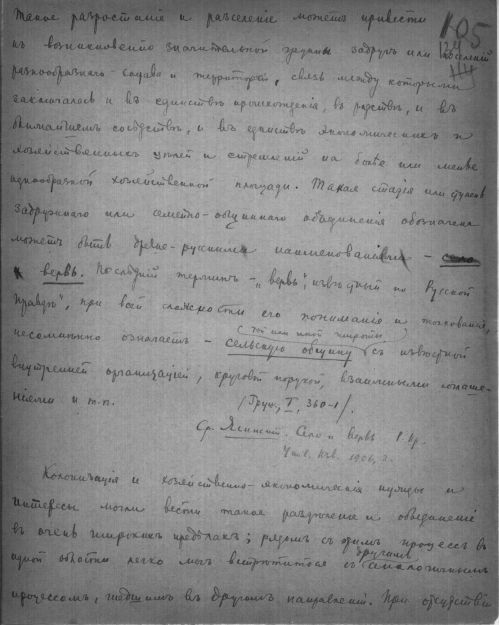 Такое разростаніе и разселеніе можетъ привести
105
къ возникновенію значительной группы задругъ или поселеній
разнообразнаго состава и территорій, связь между которыми
заключалась и въ единствѣ происхожденія, въ родствѣ, и въ
ближайшемъ сосѣдствѣ, и въ единствѣ экономическихъ и
хозяйственныхъ цѣлей и стремленій на болѣе или менѣе
однообразной хозяйственной площади. Такая стадія или ступень
задружнаго или семейно-общиннаго объединенія обозначена
можетъ быть древне-русскими наименованіями –
вервь. Послѣдній терминъ – „вервь", извѣстный по Русской
Правдѣ", при всей сложности его пониманія и толкованія,
несомнѣнно означаетъ – сельскую общину съ извѣстной
внутренней организаціей, круговой порукой, взаимными соглаше-
ніями и т.п.
/Груш., I, 360-1/.
Ср. Ясинскій. Село и вервь
Унив. Изв. 1906, 3.
Колонизація и хозяйственно-экономическія нужды и
интересы могли вести такое раздѣленіе и объединеніе
въ очень широкихъ предѣлахъ; рядомъ съ этимъ процессъ въ
одной области легко могъ встрѣтиться съ другимъ аналогичнымъ
процессомъ, шедшимъ въ другомъ направленіи. При отсутствіи